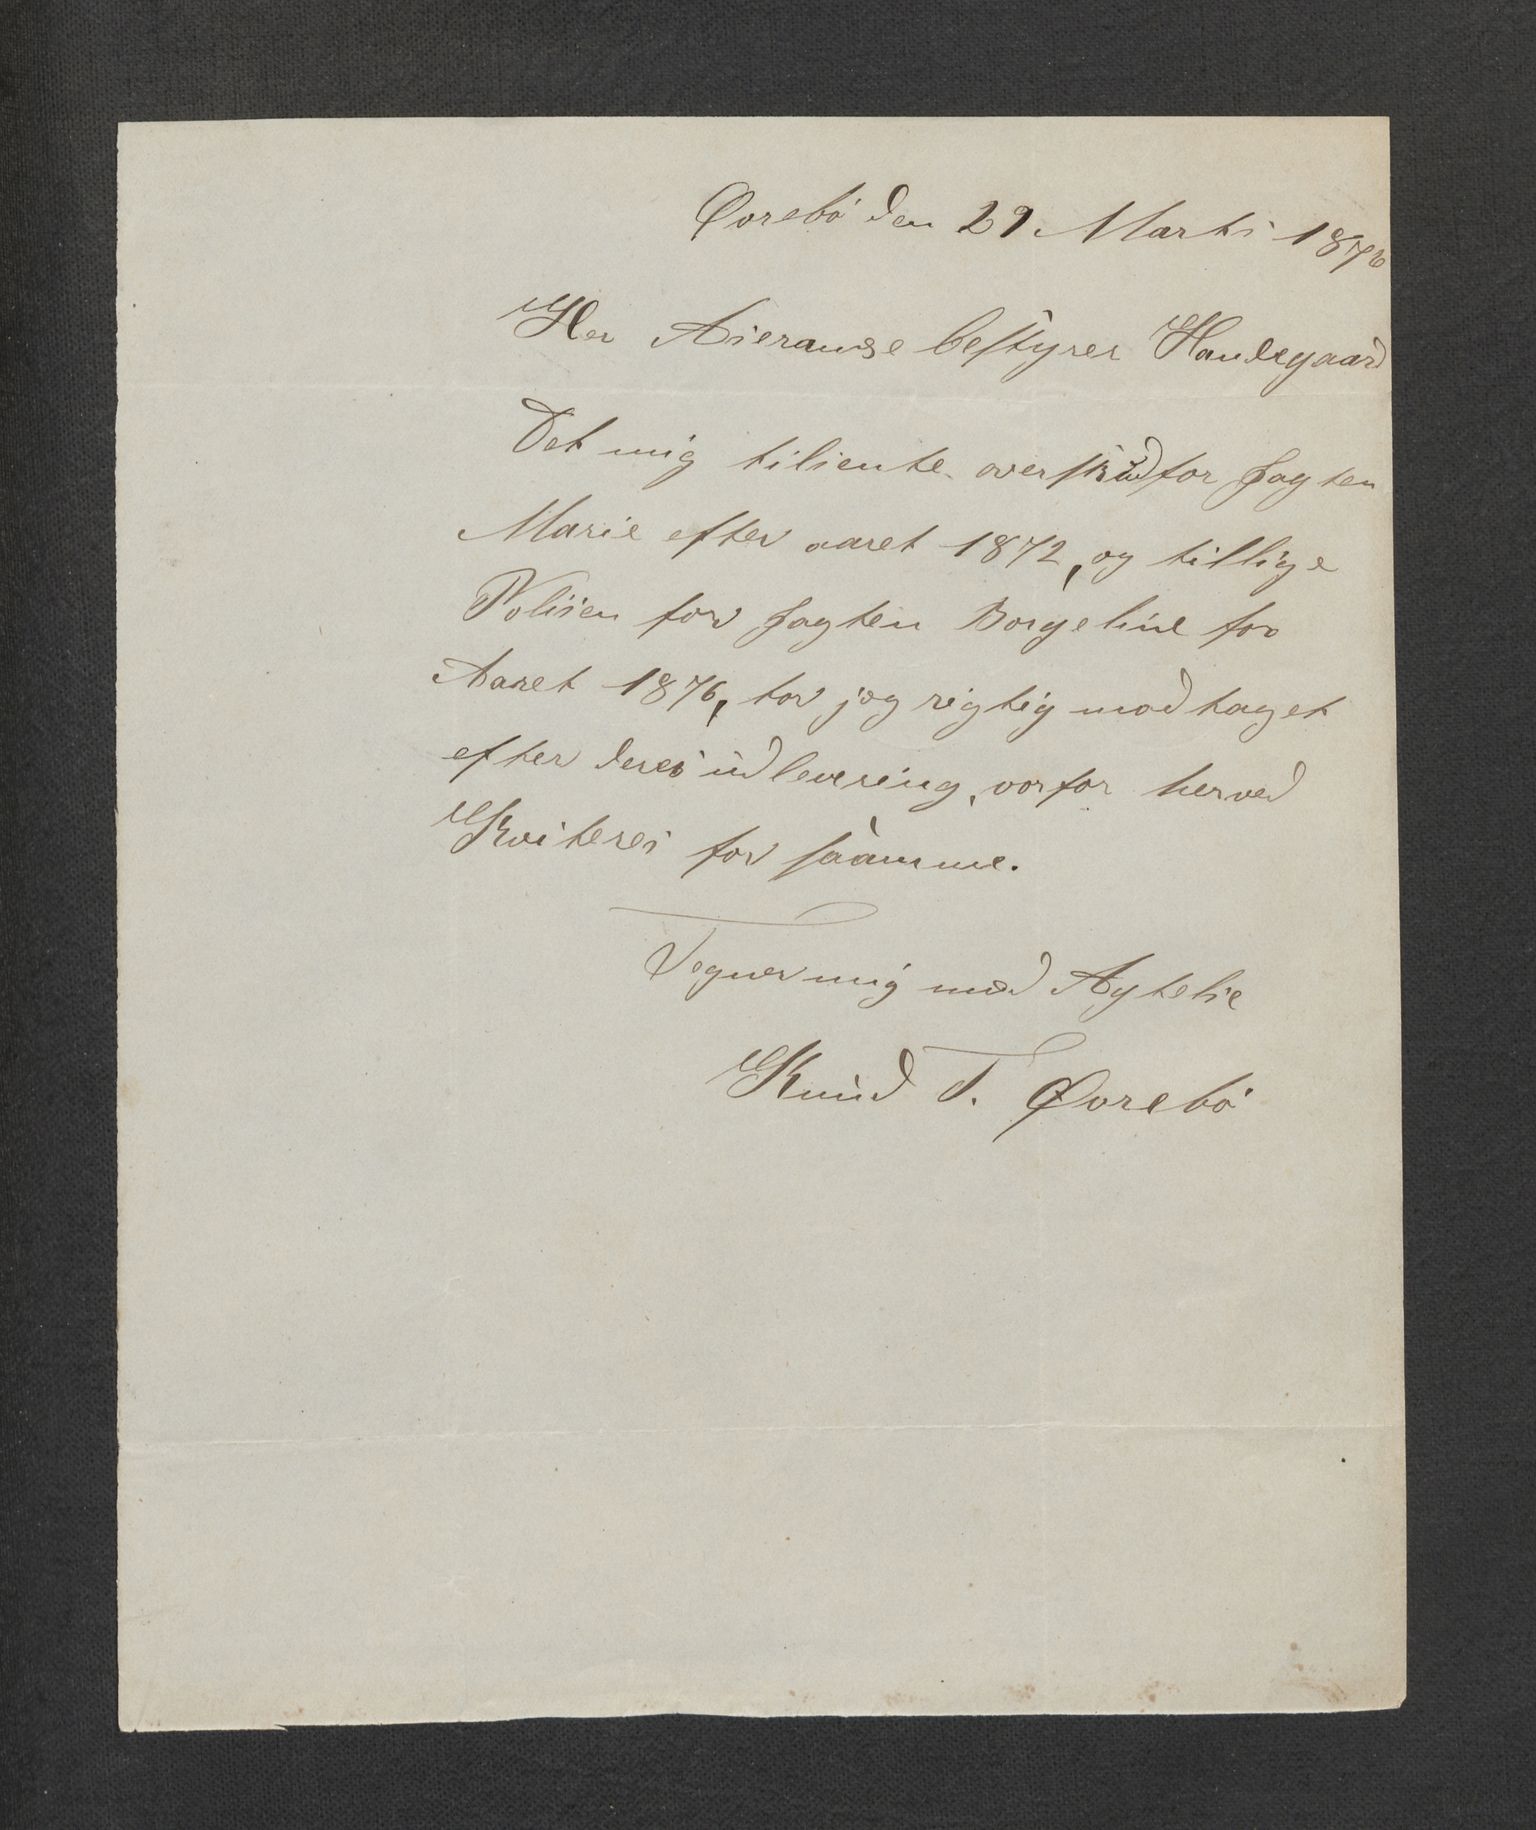 Øvrebö den 29 Marts 1876
Her Asieranse bestyrer Haudegaard
Det mig tiliente overskud for Jagten
Marie efter aaret 1872, og tillige
Polisen for Jagten Borgeline for
Aaret 1876, har jeg rigtig modtaget
efter deres udlevering, vorfor herved
Kviteres for saamme.
Tegner mig med Agtelse
Knud T. Øvrebö